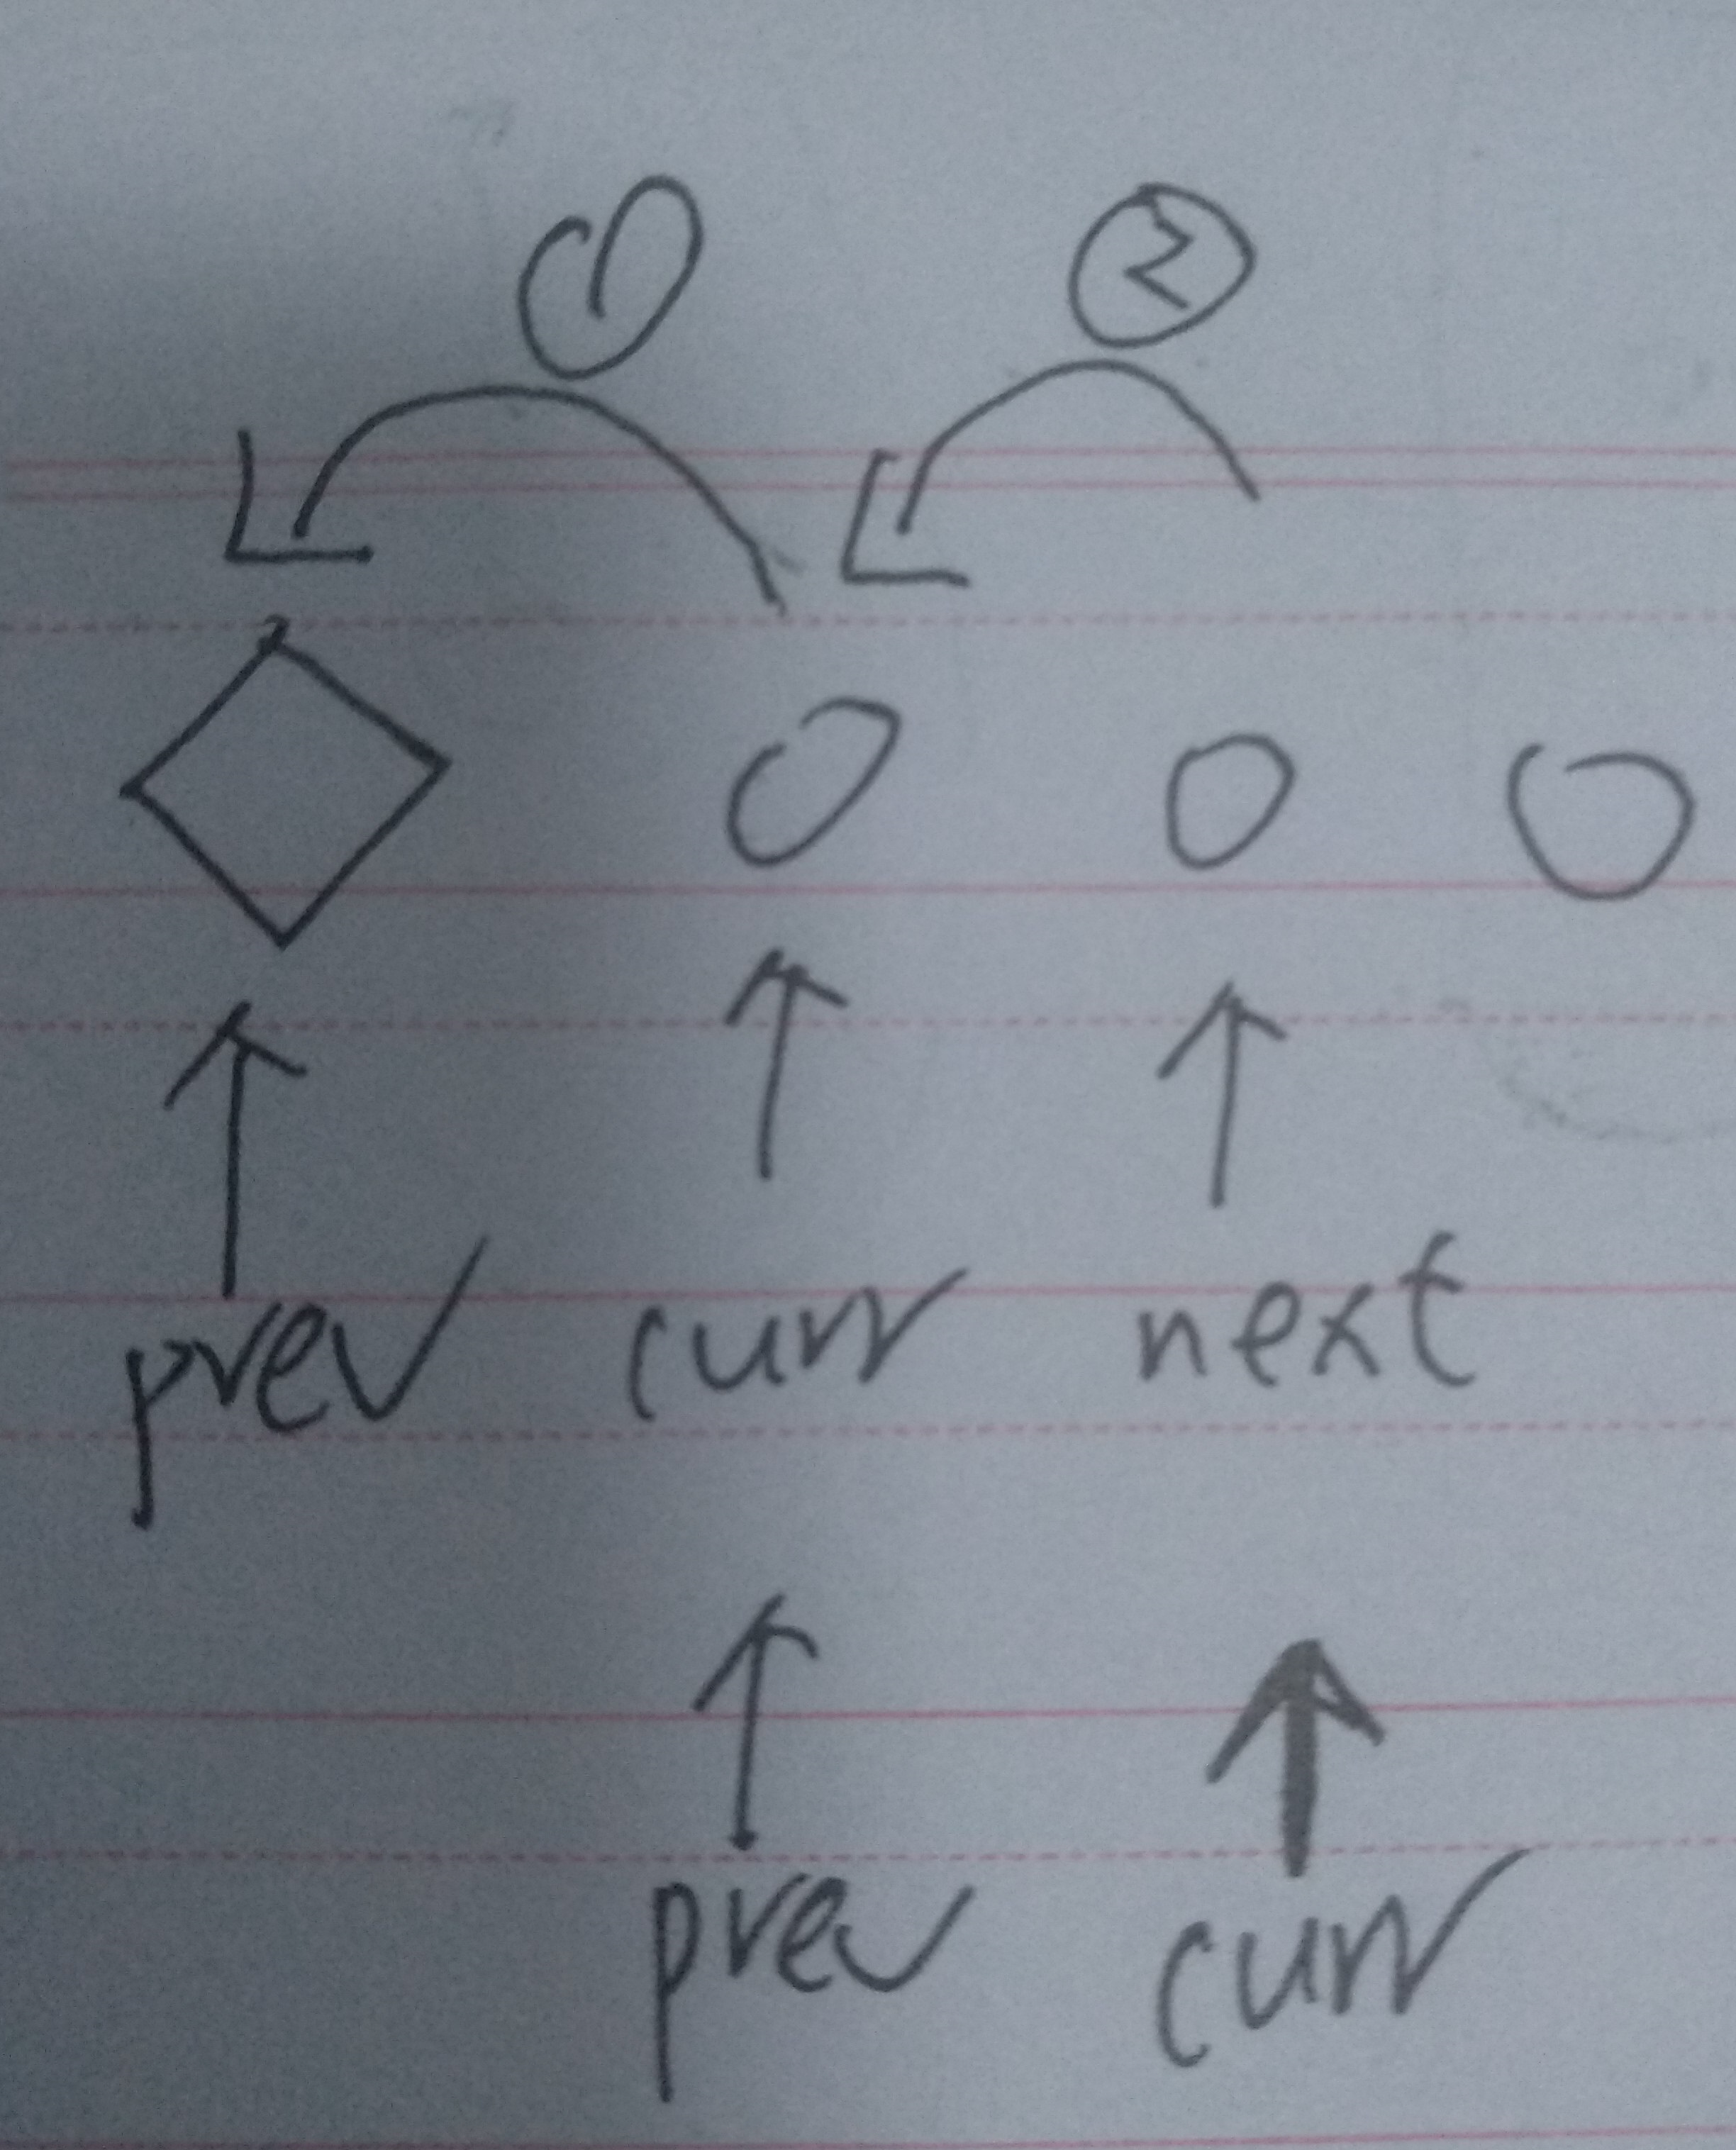 ① ②
prev curr next
prev curr